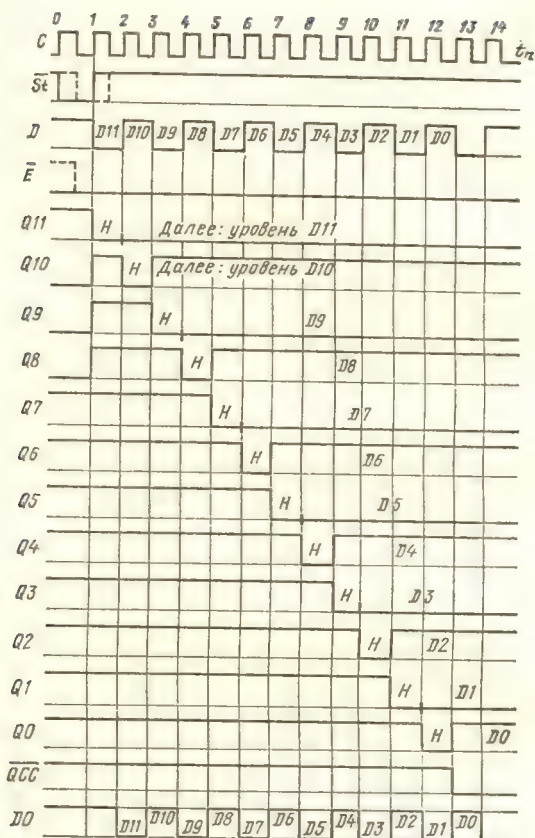 0 1 2 3 4 5 6 7 8 9 10 11 12 13 14
C tn
St
D D11 D10 D9 D8 D7 D6 D5 D4 D3 D2 D1 D0
E
Q11 H Далее: уровень D11
Q10 H Далее: уровень D10
Q9 H D9
Q8 H D8
Q7 H D7
Q6 H D6
Q5 H D5
Q4 H D4
Q3 H D3
Q2 H D2
Q1 H D1
Q0 H D0
QCC
DO D11 D10 D9 D8 D7 D6 D5 D4 D3 D2 D1 D0